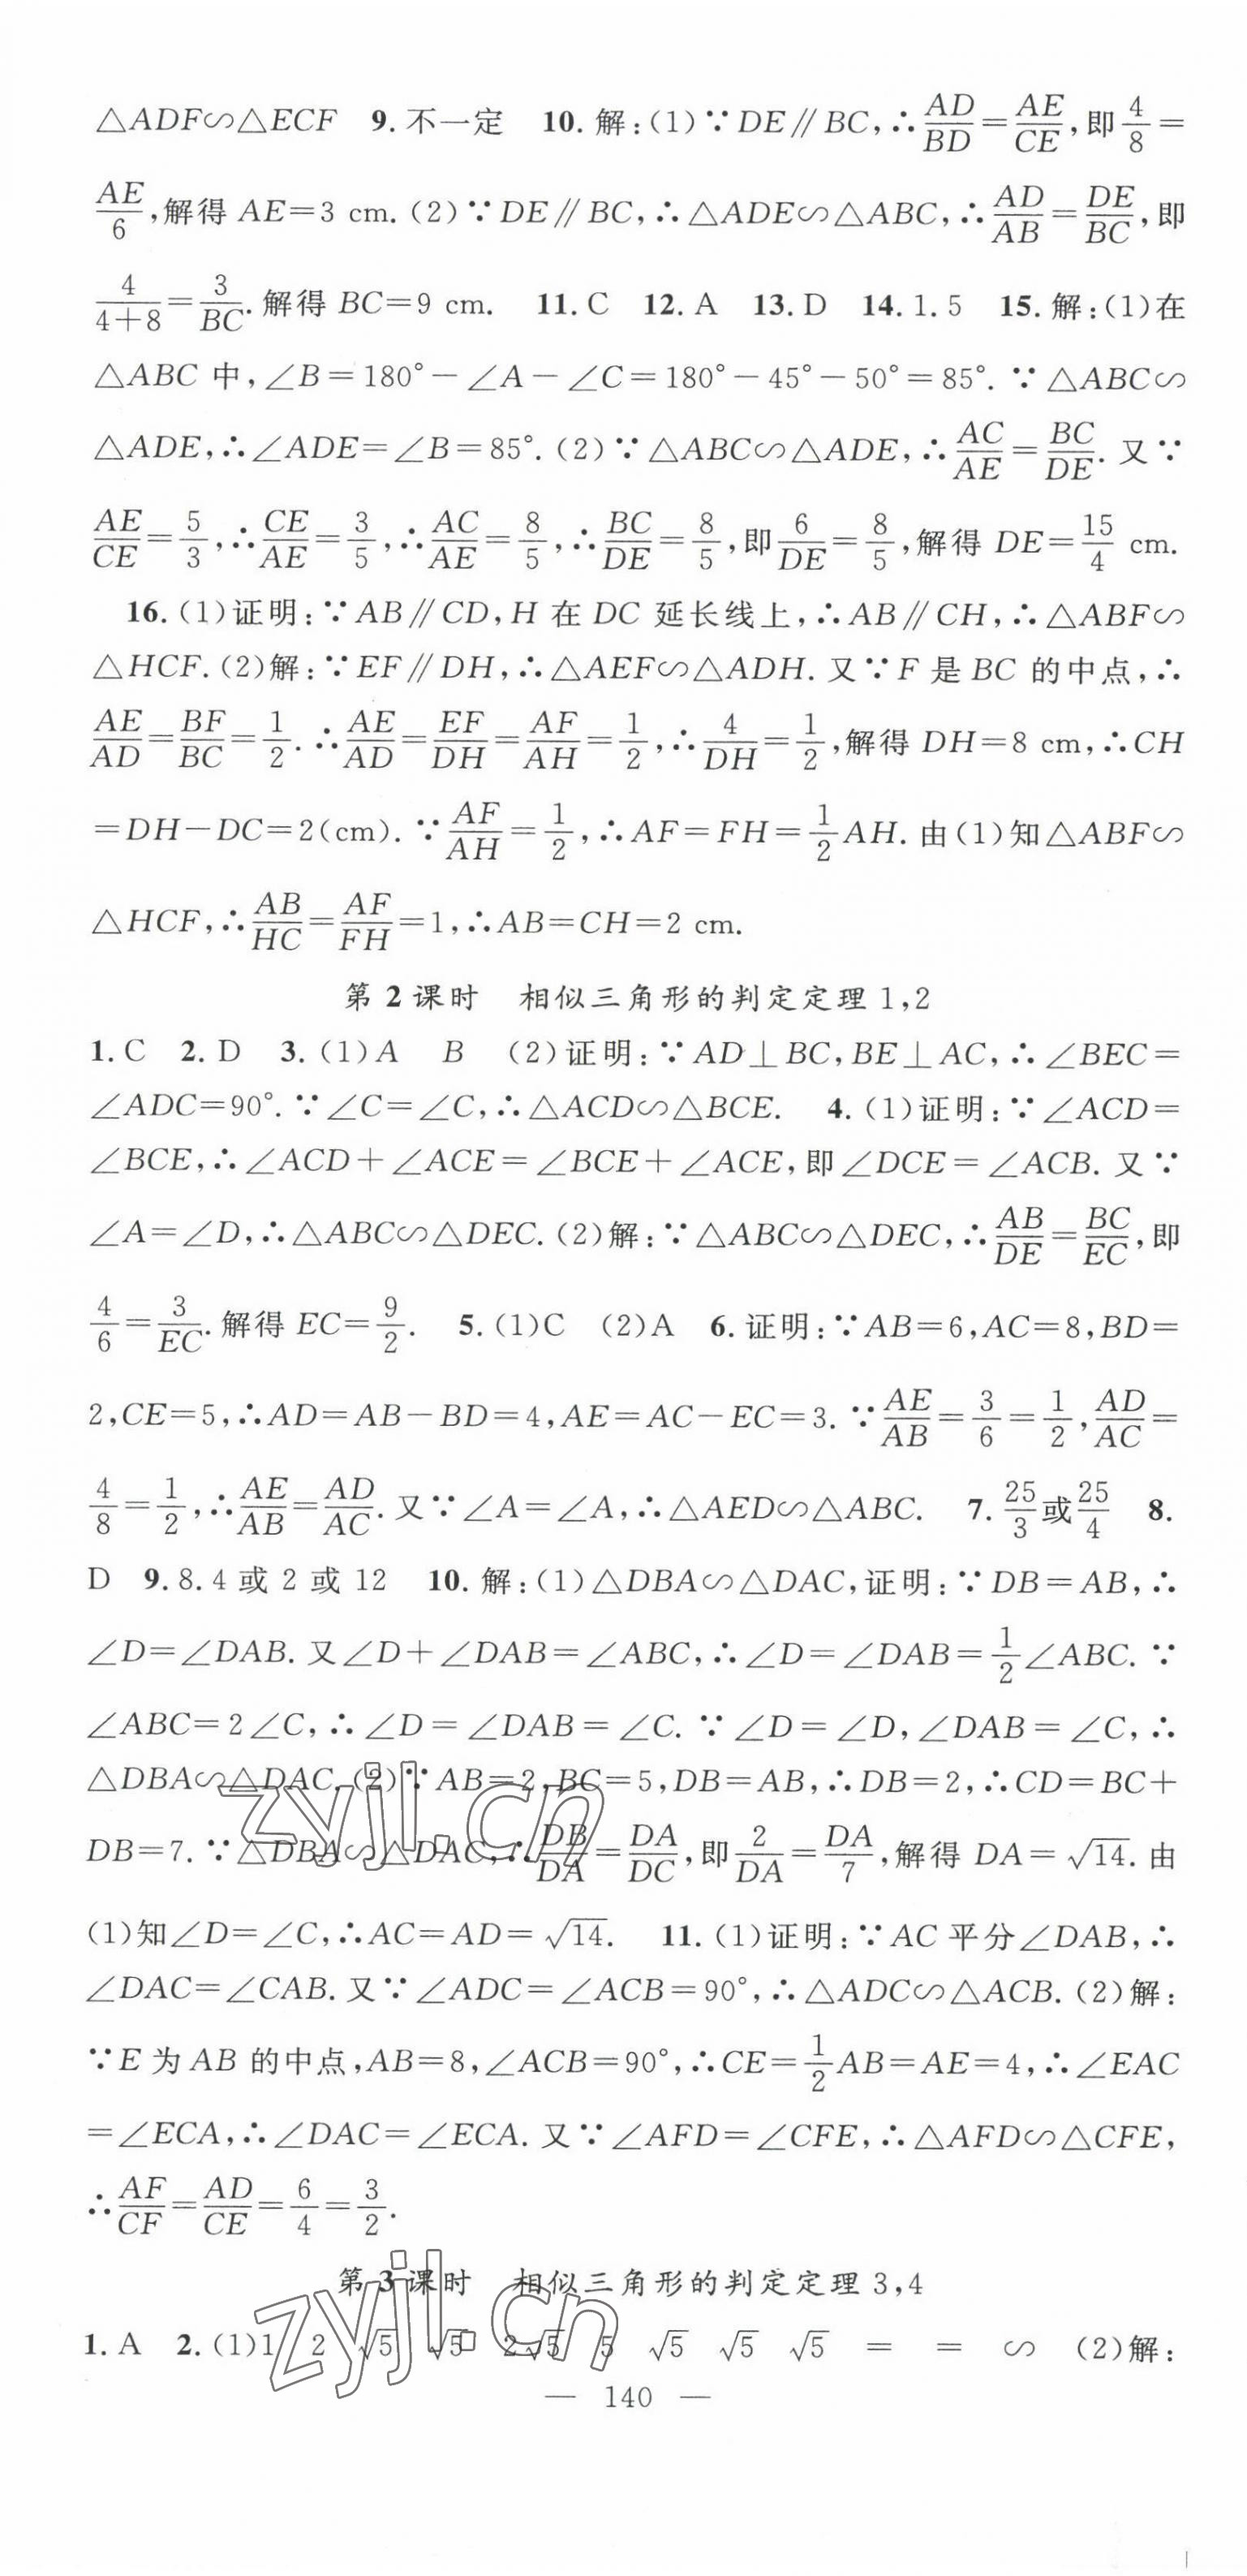 △ADF∽△ECF 9. 不一定 10. 解:(1)∵DE∥BC,∴AD/BD=AE/CE,即4/8=
AE/6,解得 AE=3 cm. (2)∵DE∥BC,∴△ADE∽△ABC,∴AD/AB=DE/BC,即
4/(4+8)=3/BC. 解得 BC=9 cm. 11. C 12. A 13. D 14. 1.5 15. 解:(1)在
△ABC 中,∠B=180°-∠A-∠C=180°-45°-50°=85°. ∵△ABC∽
△ADE,∴∠ADE=∠B=85°. (2)∵△ABC∽△ADE,∴AC/AE=BC/DE. 又∵
AE/CE=5/3,∴CE/AE=3/5,∴AC/AE=8/5,∴BC/DE=8/5,即6/DE=8/5,解得 DE=15/4 cm.
16. (1)证明:∵AB∥CD,H 在 DC 延长线上,∴AB∥CH,∴△ABF∽
△HCF. (2)解:∵EF∥DH,∴△AEF∽△ADH. 又∵F 是 BC 的中点,∴
AE/AD=BF/BC=1/2. ∴AE/AD=EF/DH=AF/AH=1/2,∴4/DH=1/2,解得 DH=8 cm,∴CH
=DH-DC=2(cm). ∵AF/AH=1/2,∴AF=FH=1/2AH. 由(1)知△ABF∽
△HCF,∴AB/HC=AF/FH=1,∴AB=CH=2 cm.
第 2 课时 相似三角形的判定定理 1,2
1. C 2. D 3. (1)A B (2)证明:∵AD⊥BC,BE⊥AC,∴∠BEC=
∠ADC=90°. ∵∠C=∠C,∴△ACD∽△BCE. 4. (1)证明:∵∠ACD=
∠BCE,∴∠ACD+∠ACE=∠BCE+∠ACE,即∠DCE=∠ACB. 又∵
∠A=∠D,∴△ABC∽△DEC. (2)解:∵△ABC∽△DEC,∴AB/DE=BC/EC,即
4/6=3/EC. 解得 EC=9/2. 5. (1)C (2)A 6. 证明:∵AB=6,AC=8,BD=
2,CE=5,∴AD=AB-BD=4,AE=AC-EC=3. ∵AE/AB=3/6=1/2,AD/AC=
4/8=1/2,∴AE/AB=AD/AC. 又∵∠A=∠A,∴△AED∽△ABC. 7. 25/3或25/4 8.
D 9. 8.4 或 2 或 12 10. 解:(1)△DBA∽△DAC,证明:∵DB=AB,∴
∠D=∠DAB. 又∠D+∠DAB=∠ABC,∴∠D=∠DAB=1/2∠ABC. ∵
∠ABC=2∠C,∴∠D=∠DAB=∠C. ∵∠D=∠D,∠DAB=∠C,∴
△DBA∽△DAC. (2)∵AB=2,BC=5,DB=AB,∴DB=2,∴CD=BC+
DB=7. ∵△DBA∽△DAC,∴DB/DA=DA/DC,即2/DA=DA/7,解得 DA=√14. 由
(1)知∠D=∠C,∴AC=AD=√14. 11. (1)证明:∵AC 平分∠DAB,∴
∠DAC=∠CAB. 又∵∠ADC=∠ACB=90°,∴△ADC∽△ACB. (2)解:
∵E 为 AB 的中点,AB=8,∠ACB=90°,∴CE=1/2AB=AE=4,∴∠EAC
=∠ECA,∴∠DAC=∠ECA. 又∵∠AFD=∠CFE,∴△AFD∽△CFE,
∴AF/CF=AD/CE=6/4=3/2.
第 3 课时 相似三角形的判定定理 3,4
1. A 2. (1)1 2 √5 √5 2√5 5 √5 √5 √5 = = ∽ (2)解:
— 140 —
zyjl.cn
zyjl.cn